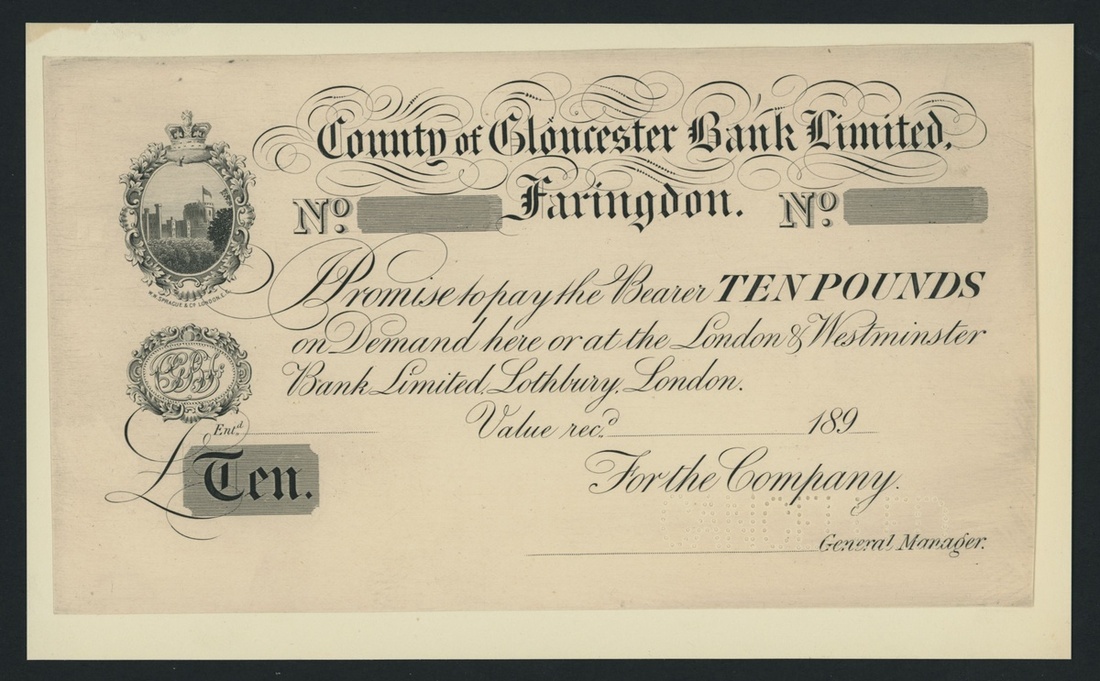 County of Gloucester Bank Limited,
Faringdon.
No. No.
W.W. SPRAGUE & Co. LONDON, E.C.
I Promise to pay the Bearer TEN POUNDS
on Demand here or at the London & Westminster
Bank Limited, Lothbury, London.
Value rec.d 189
Ent.d
£ Ten.
For the Company.
General Manager.